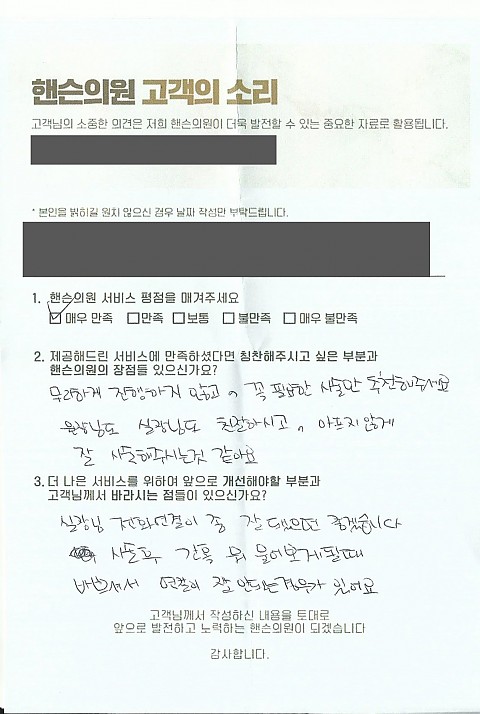 핸슨의원 고객의 소리
고객님의 소중한 의견은 저희 핸슨의원이 더욱 발전할 수 있는 중요한 자료로 활용됩니다.
* 본인을 밝히길 원치 않으신 경우 날짜 작성만 부탁드립니다.
1. 핸슨의원 서비스 평점을 매겨주세요
☑ 매우 만족 □만족 □보통 □불만족 □ 매우 불만족
2. 제공해드린 서비스에 만족하셨다면 칭찬해주시고 싶은 부분과
핸슨의원의 장점들 있으신가요?
무리하게 진행하지 않고, 꼭 필요한 시술만 추천해주셔요
원장님도 실장님도 친절하시고, 아프지 않게
잘 시술해주시는것 같아요
3. 더 나은 서비스를 위하여 앞으로 개선해야할 부분과
고객님께서 바라시는 점들이 있으신가요?
실장님 전화연결이 좀 잘 됐으면 좋겠습니다
시술후 간혹 뭐 물어보게될때
바쁘셔서 연결이 잘 안되는경우가 있어요
고객님께서 작성하신 내용을 토대로
앞으로 발전하고 노력하는 핸슨의원이 되겠습니다
감사합니다.